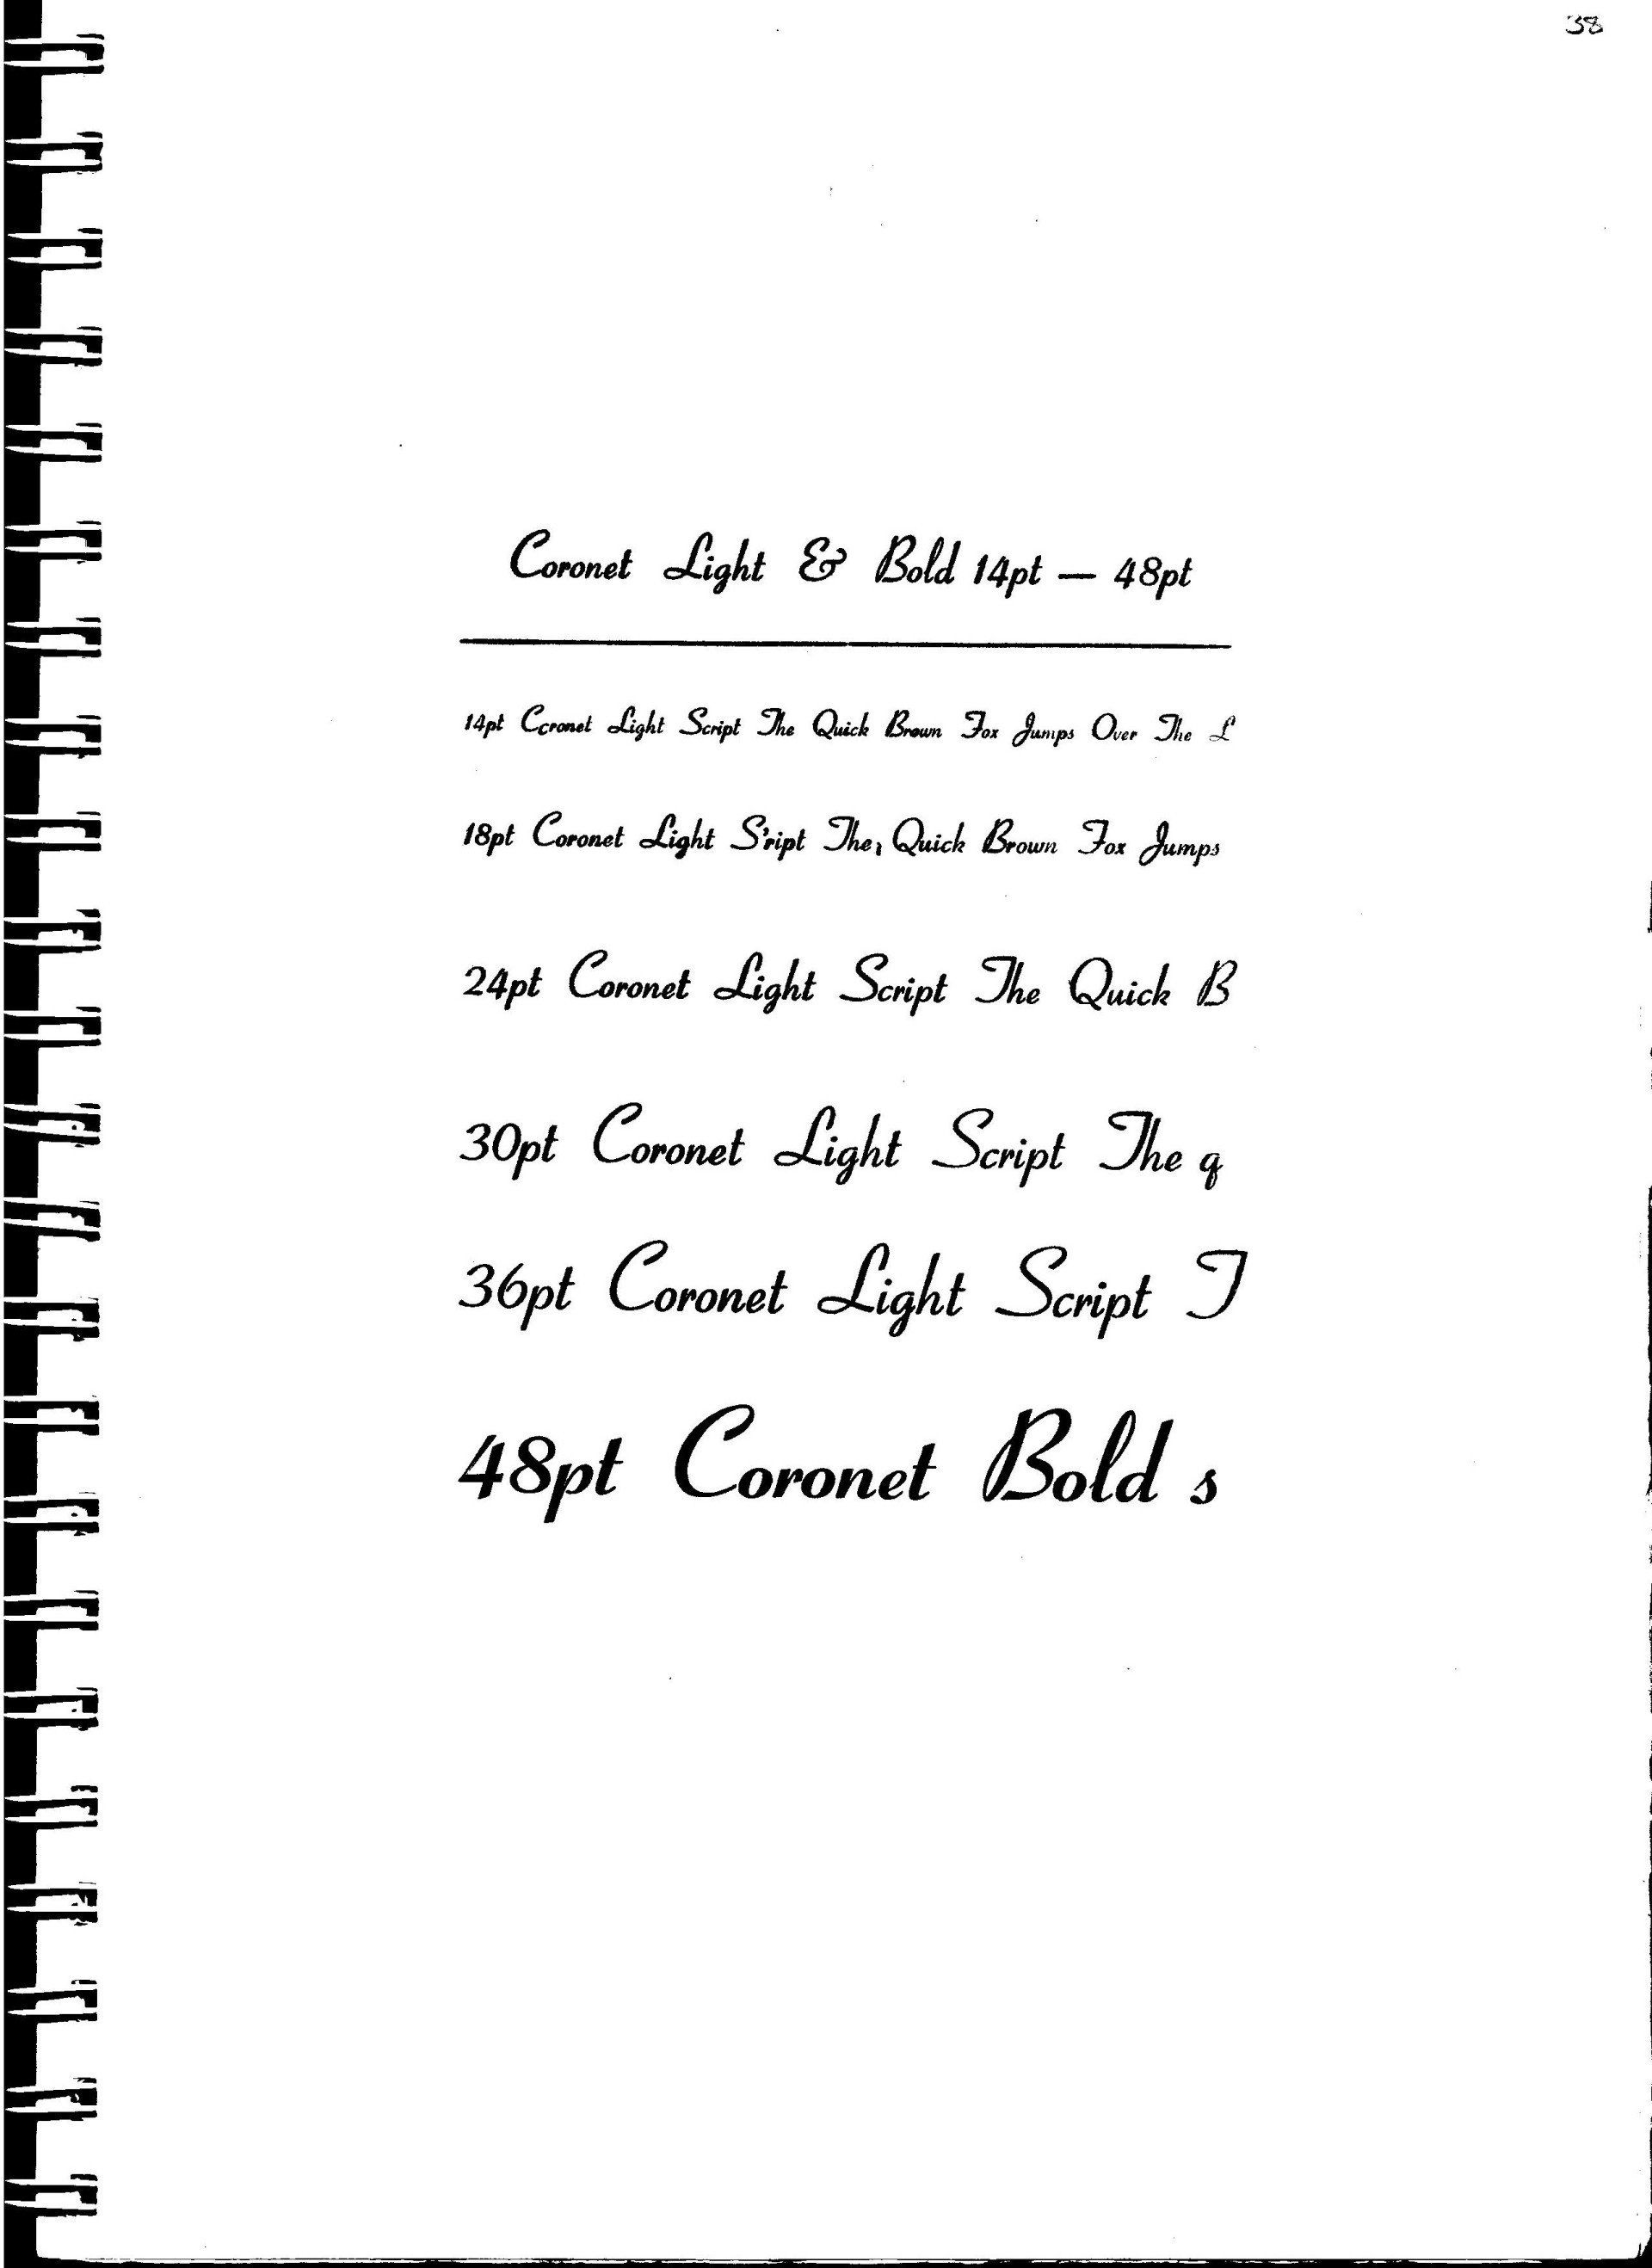 38
Coronet Light & Bold 14pt — 48pt
14pt Ccronet Light Script The Quick Brown Fox Jumps Over The L
18pt Coronet Light S'ript The, Quick Brown Fox Jumps
24pt Coronet Light Script The Quick B
30pt Coronet Light Script The q
36pt Coronet Light Script T
48pt Coronet Bold s